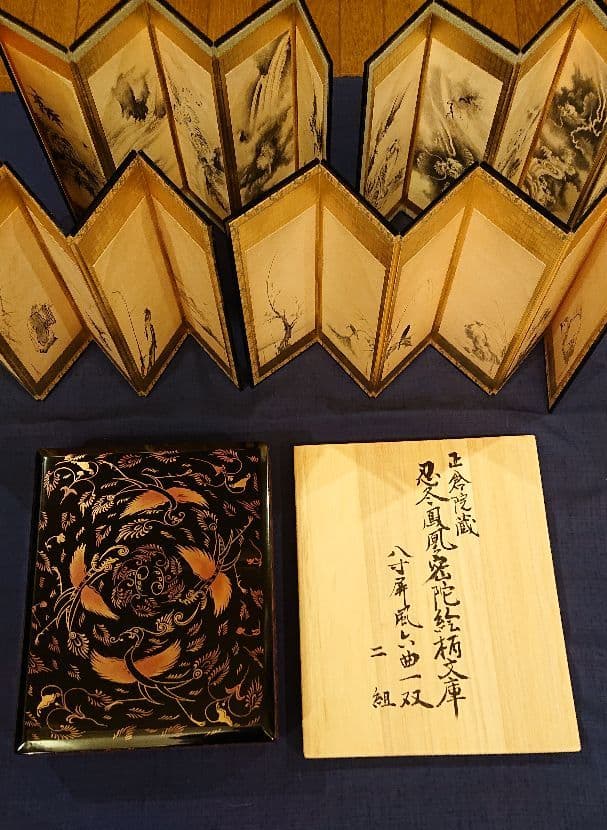 正倉院蔵
忍冬鳳凰密陀絵柄文庫
八寸屏風六曲一双
二組